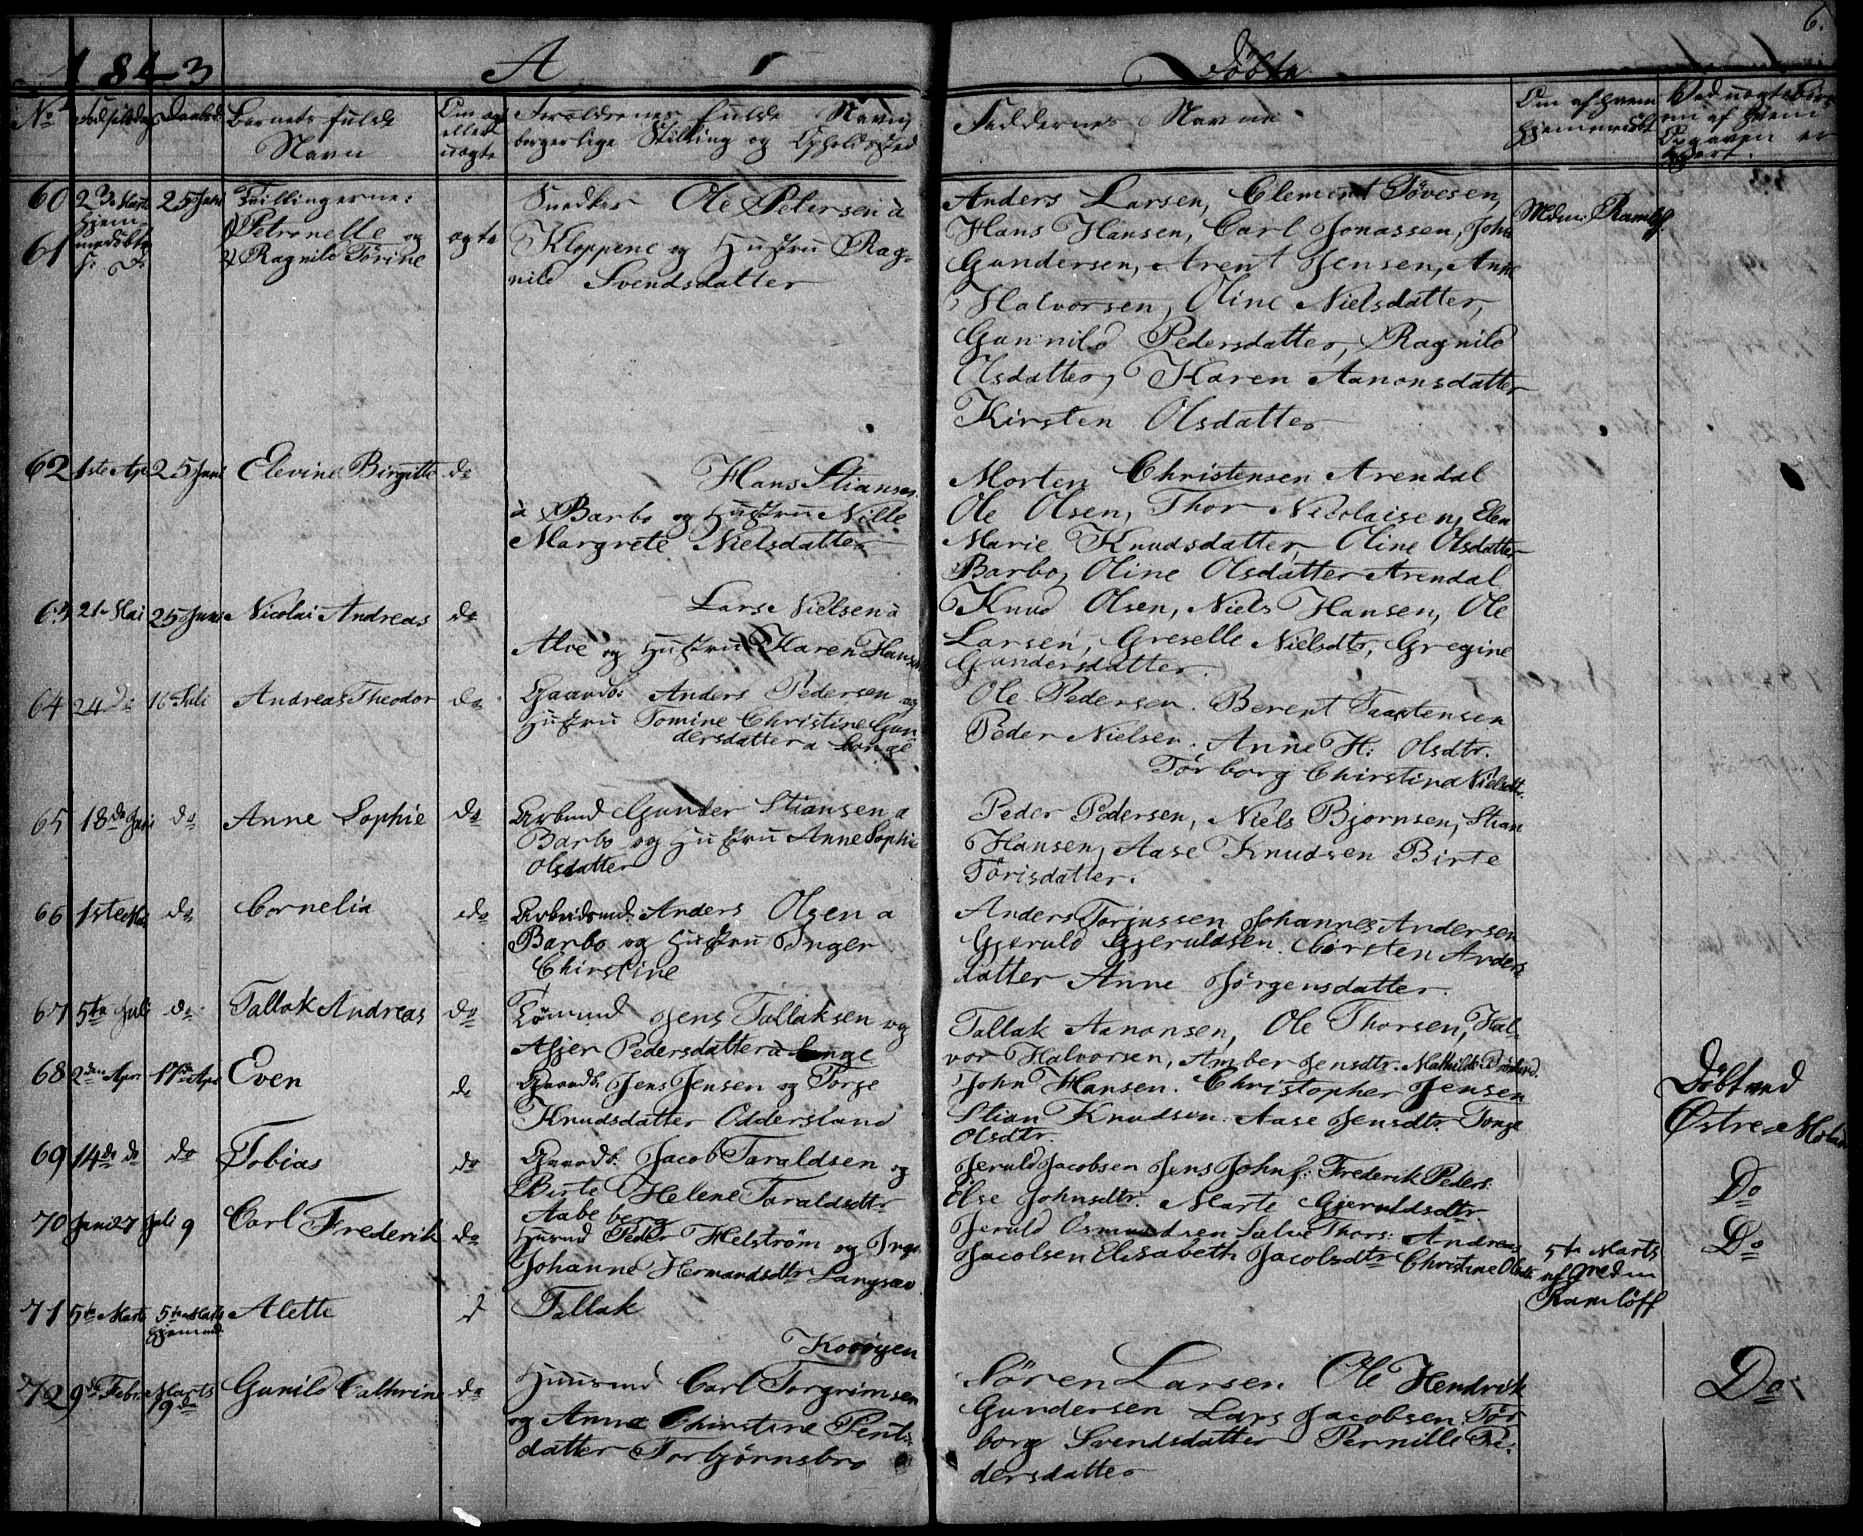 1843 A Döbte 6.
No Fødselsdag Daabsd. Barnets fulde Navn Om ægte eller uægte Forældrenes fulde Navn, borgerlige Stilling og Opholdssted
Faddernes Navne Om af hvem hjemmedöbt
60 23de Marts 25 Juni Tvillingerne: Snedker Ole Petersen à
hjem 1) Petronelle og
61 medöbte 2) Ragnild Törine ægte Kloppene og Hustru Rag-
nild Svendsdatter
Anders Larsen, Clement Tövesen,
Hans Hansen, Carl Jonassen, John
Gundersen, Arent Jensen, Anne
Halvorsen, Oline Nielsdatter,
Gunnild Pedersdatter, Ragnild
Olsdatter, Karen Aanonsdatter
Kirsten Olsdatter
Ramlöff
62 1ste Apr 25 Juni Elevine Birgitte do Hans Stiansen
à Barbo og Hustru Nille
Margrete Nielsdatter
Morten Christensen Arendal
Ole Olsen, Thor Nicolaisen, Elen
Marie Knudsdatter, Oline Olsdatter
Barbo, Oline Olsdatter Arendal
63 21 Mai 25 Juni Nicolai Andreas do Lars Nielsen à
Alve og Hustru Karen Hans
Knud Olsen, Niels Hansen, Ole
Larsen, Greselle Nielsdtr, Gregine
Gundersdatter
64 24 Do 16 Juli Andreas Theodor do Gaardb: Anders Pedersen og
Hustru Tomine Christine Gun
dersdatter a Longe
Ole Pedersen. Berent Taartensen
Peder Nielsen. Anne H: Olsdtr.
Torborg Chirstina Nielsdt.
65 18de Juni do Anne Sophie do Arbmd Gunder Stiansen a
Barbo og Hustru Anne Sophie
Olsdatter
Peder Pedersen, Niels Bjørnsen, Stian
Hansen, Aase Knudsen Birte
Törisdatter.
66 1ste Mai do Cornelia do Arbeidsmd. Anders Olsen a
Barbo og Hustru Inger
Chirstine
Anders Torjussen Johannes Andersen
Gjeruld Gjeruldsen. Cirsten Anders
datter Anne Jörgensdatter.
67 5te Juli do Tallak Andreas do Tömmd Jens Tallaksen og
Asjer Pedersdatter à Longe
Tallak Aanonsen, Ole Thorsen, Hal-
vor Halvorsen, Amber Jensdtr. Mathilde
68 2den Apr. 17de Apr Even do Gaardb. Jens Jensen og Torge
Knudsdatter Oddersland
John Hansen. Christopher Jensen
Stian Knudsen. Aase Jensdtr. Tonge
Olsdtr.
Döbt ved
Østre Moland
69 14de do do Tobias do Gaardb. Jacob Taraldsen og
Birte Helene Taraldsdtr
Aabeberg
Jeruld Jacobsen Jens Johnf: Frederik Peders
Else Johnsdtr. Marte Gjeruldsdtr
Do
70 Juni 27 Juli 9 Carl Frederik do Husmd Peder Helström og Inge
Johanne Hermandsdtr Langsæv
Jeruld Osmundsen Salve Thors: Andreas
Jacobsen Elisabeth Jacobsdtr Christine Olsdtr
Do
71 5te Marts 5te Marts hjemmed. Alette d Tallak
Kooöyen
5te Marts
af Preden
Ramlöff
72 9de Febr. Marts 19de Gunild Cathrine do Huusmd Carl Torgrimsen
og Anne Chirstine Pents
datter Torbjörnsbro
Sören Larsen Ole Hendrik
Gundersen Lars Jacobsen Tör
borg Svendsdatter Pernille Pe-
dersdatter
Do